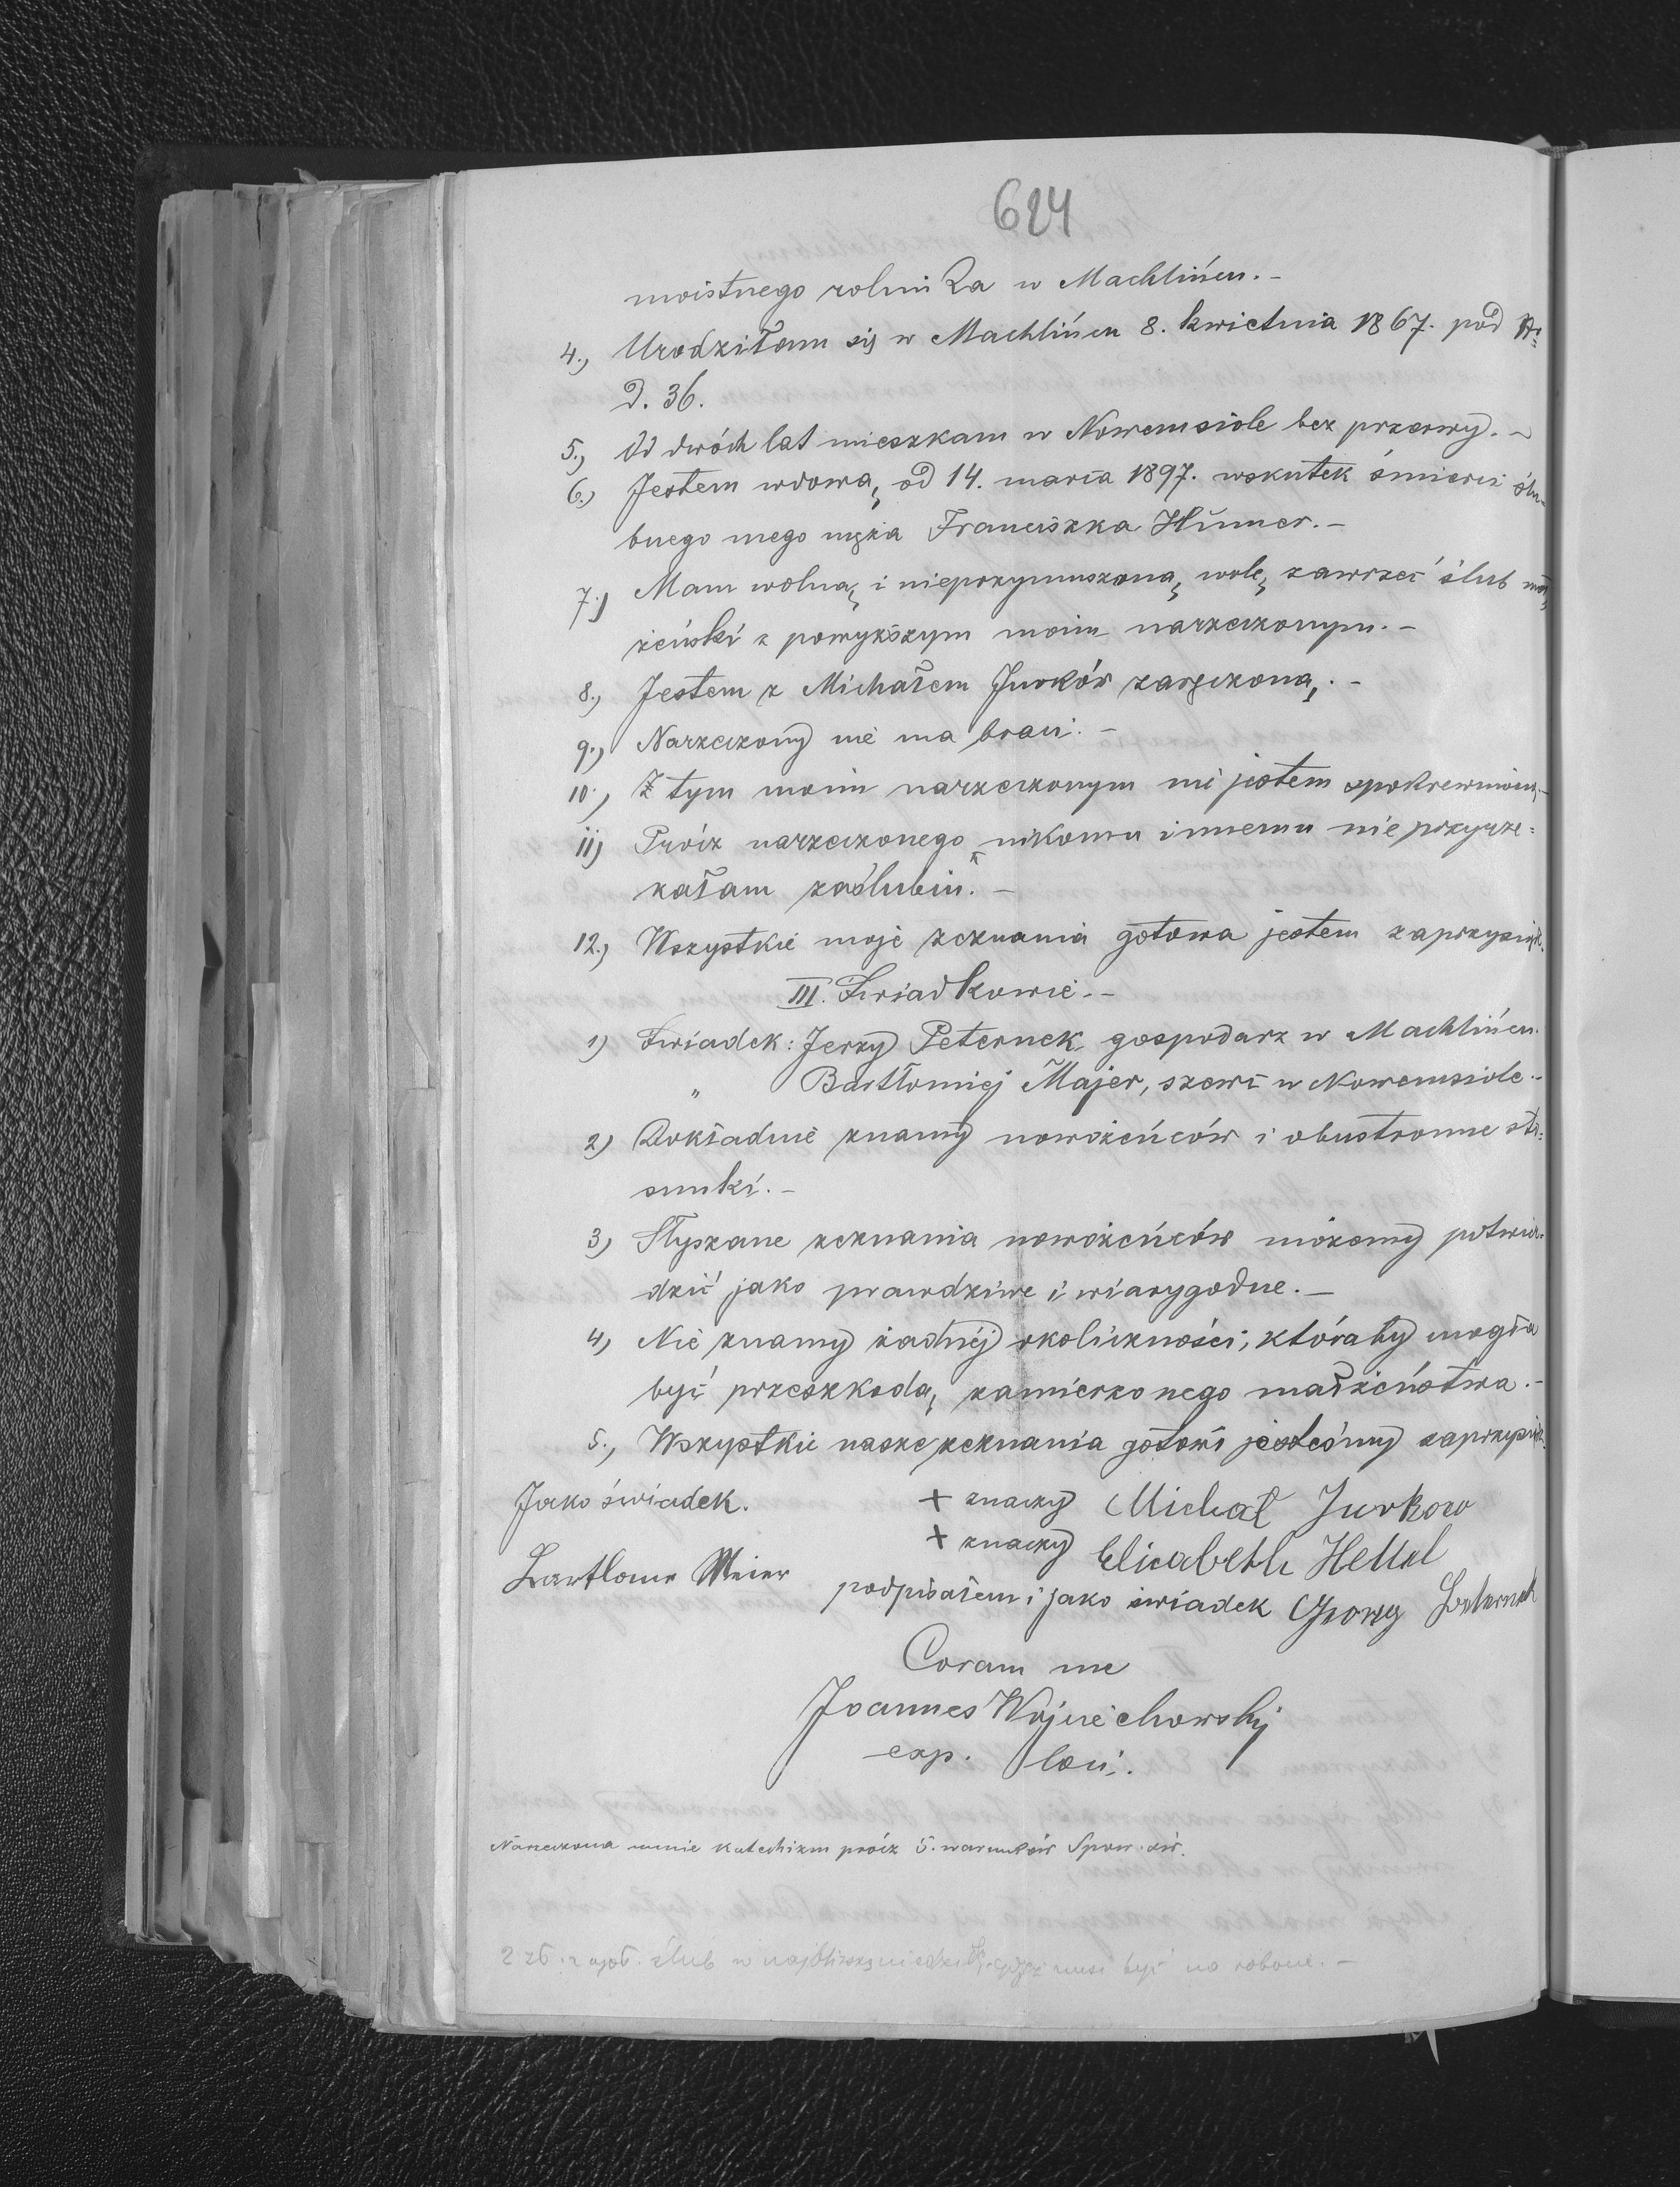 624
moistnego rolnika w Machlińcu.-
4.) Urodziłam się w Machlińcu 8. kwietnia 1867. pod Nr
D. 36.
5.) Od dwóch lat mieszkam w Nowemsiole bez przerwy. -
6.) Jestem wdową od 14. marca 1897. wskutek śmierci ślu-
bnego mego męża Franciszka Hünner.-
7.) Mam wolną i nieprzymuszoną wolę zawrzeć ślub mał
żeński z powyższym moim narzeczonym.-
8.) Jestem z Michałem Jurków zaręczoną.-
9.) Narzeczony nie ma braci.-
10.) Z tym moim narzeczonym nie jestem spokrewnioną.-
11) Prócz narzeczonego nikomu innemu nie przyrze=
kałam zaślubin.-
12.) Wszystkie moje zeznania gotowa jestem zaprzysiądz.
III. Świadkowie.-
1) Świadek: Jerzy Peternek gospodarz w Machlińcu.
" Bartłomiej Majer, szewc w Nowemsiole.-
2) Dokładnie znamy nowożeńców i obustronne sto=
sunki.-
3) Słyszane zeznania nowożeńców możemy potwier=
dzić jako prawdziwe i wiarygodne.-
4) Nie znamy żadnéj okoliczności, któraby mogła
być przeszkodą zamierzonego małżeństwa.-
5.) Wszystkie nasze zeznania gotowi jesteśmy zaprzysiądz.
Jako świadek. + znaczy Michał Jurkow
+ znaczy Elisabeth Hettel
Bartlome Meier podpisałem i jako świadek Georg Peternek
Coram me
Joannes Wojciechowskij
exp. loci.
Narzeczona umie katechizm prócz 5. warunków Spow. św.
ślub w być na robocie.-